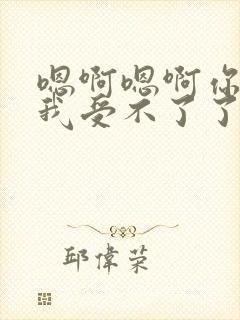 嗯啊嗯啊你
我受不了了
邱偉荣